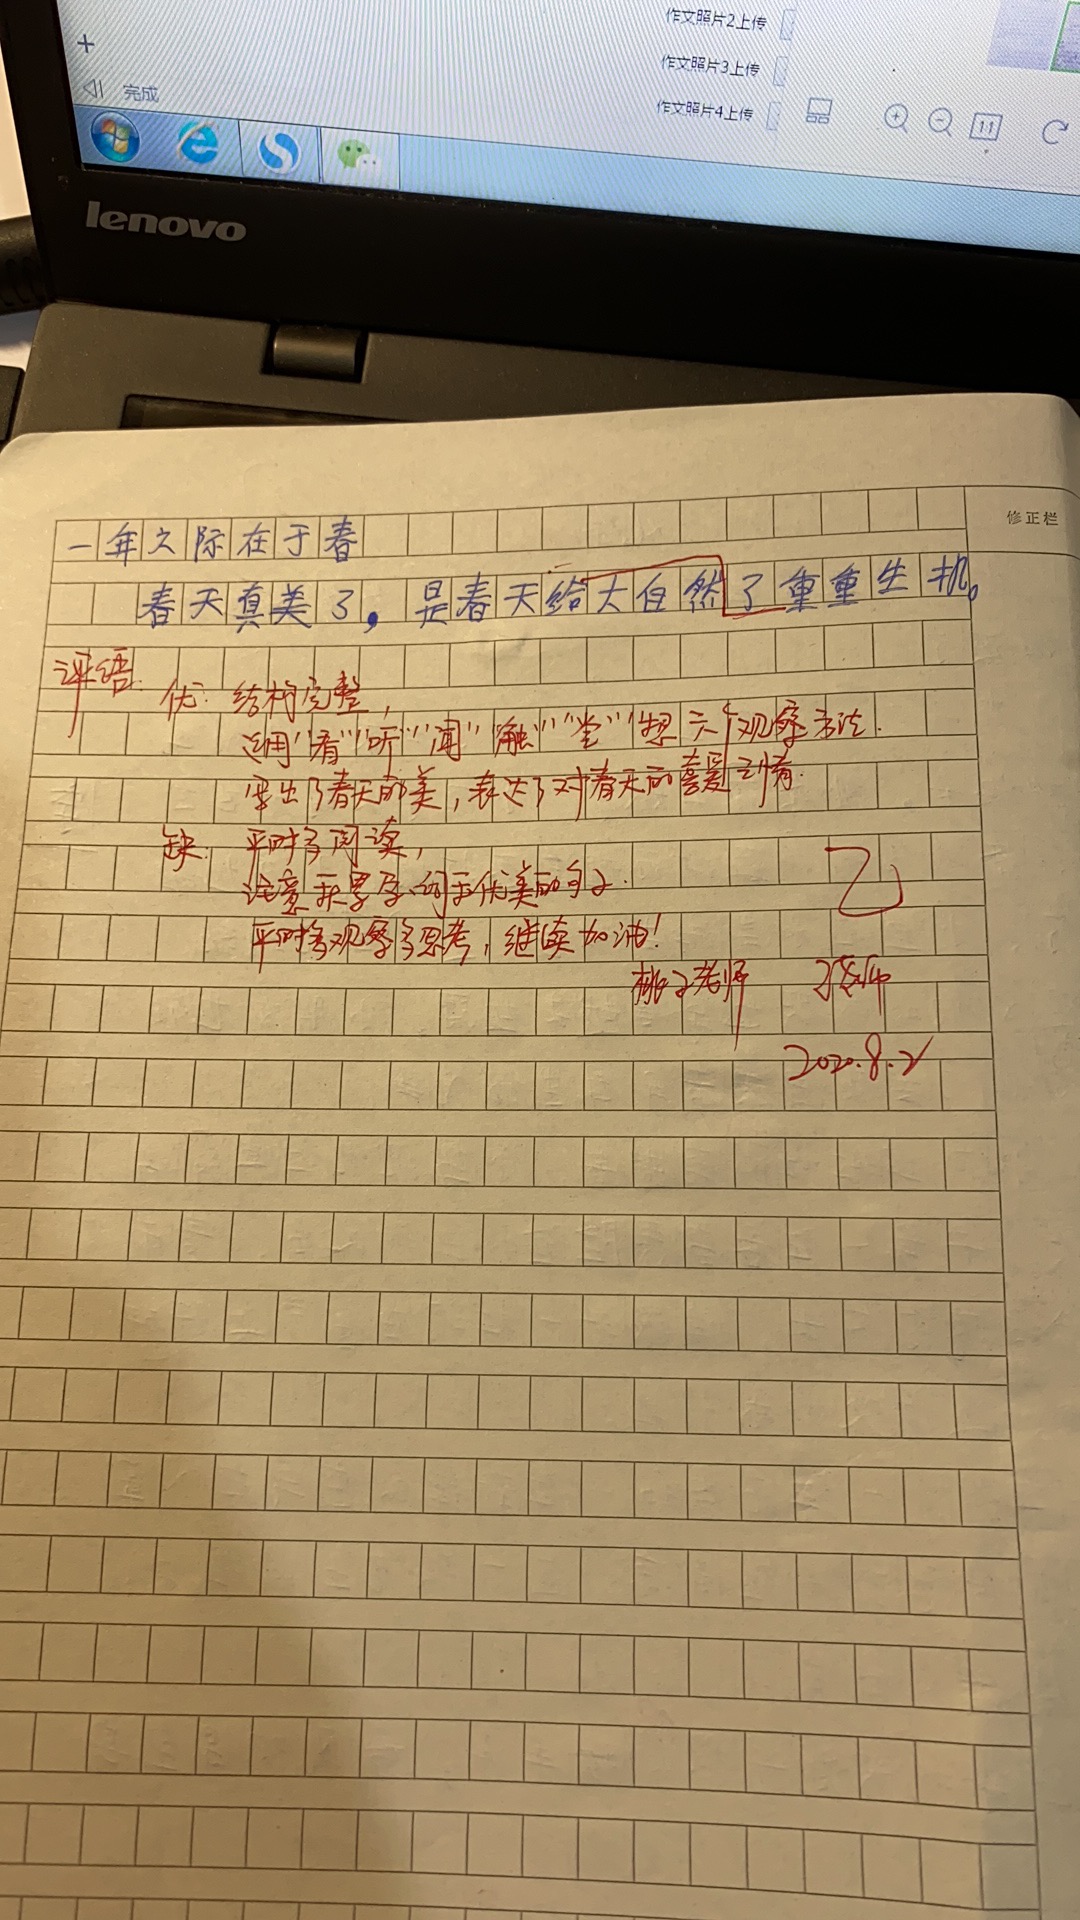 作文照片2上传
作文照片3上传
作文照片4上传
完成
lenovo
修正栏
一年之际在于春
春天真美了,是春天给大自然了重重生机。
评语:
优:结构完整,
运用"看""听""闻""触""尝""想"六个观察方法.
写出了春天的美,表达了对春天的喜爱之情.
缺:平时多阅读,
注意积累好词于优美的句子.
平时多观察多思考,继续加油!
乙
桃子老师
2020.8.2